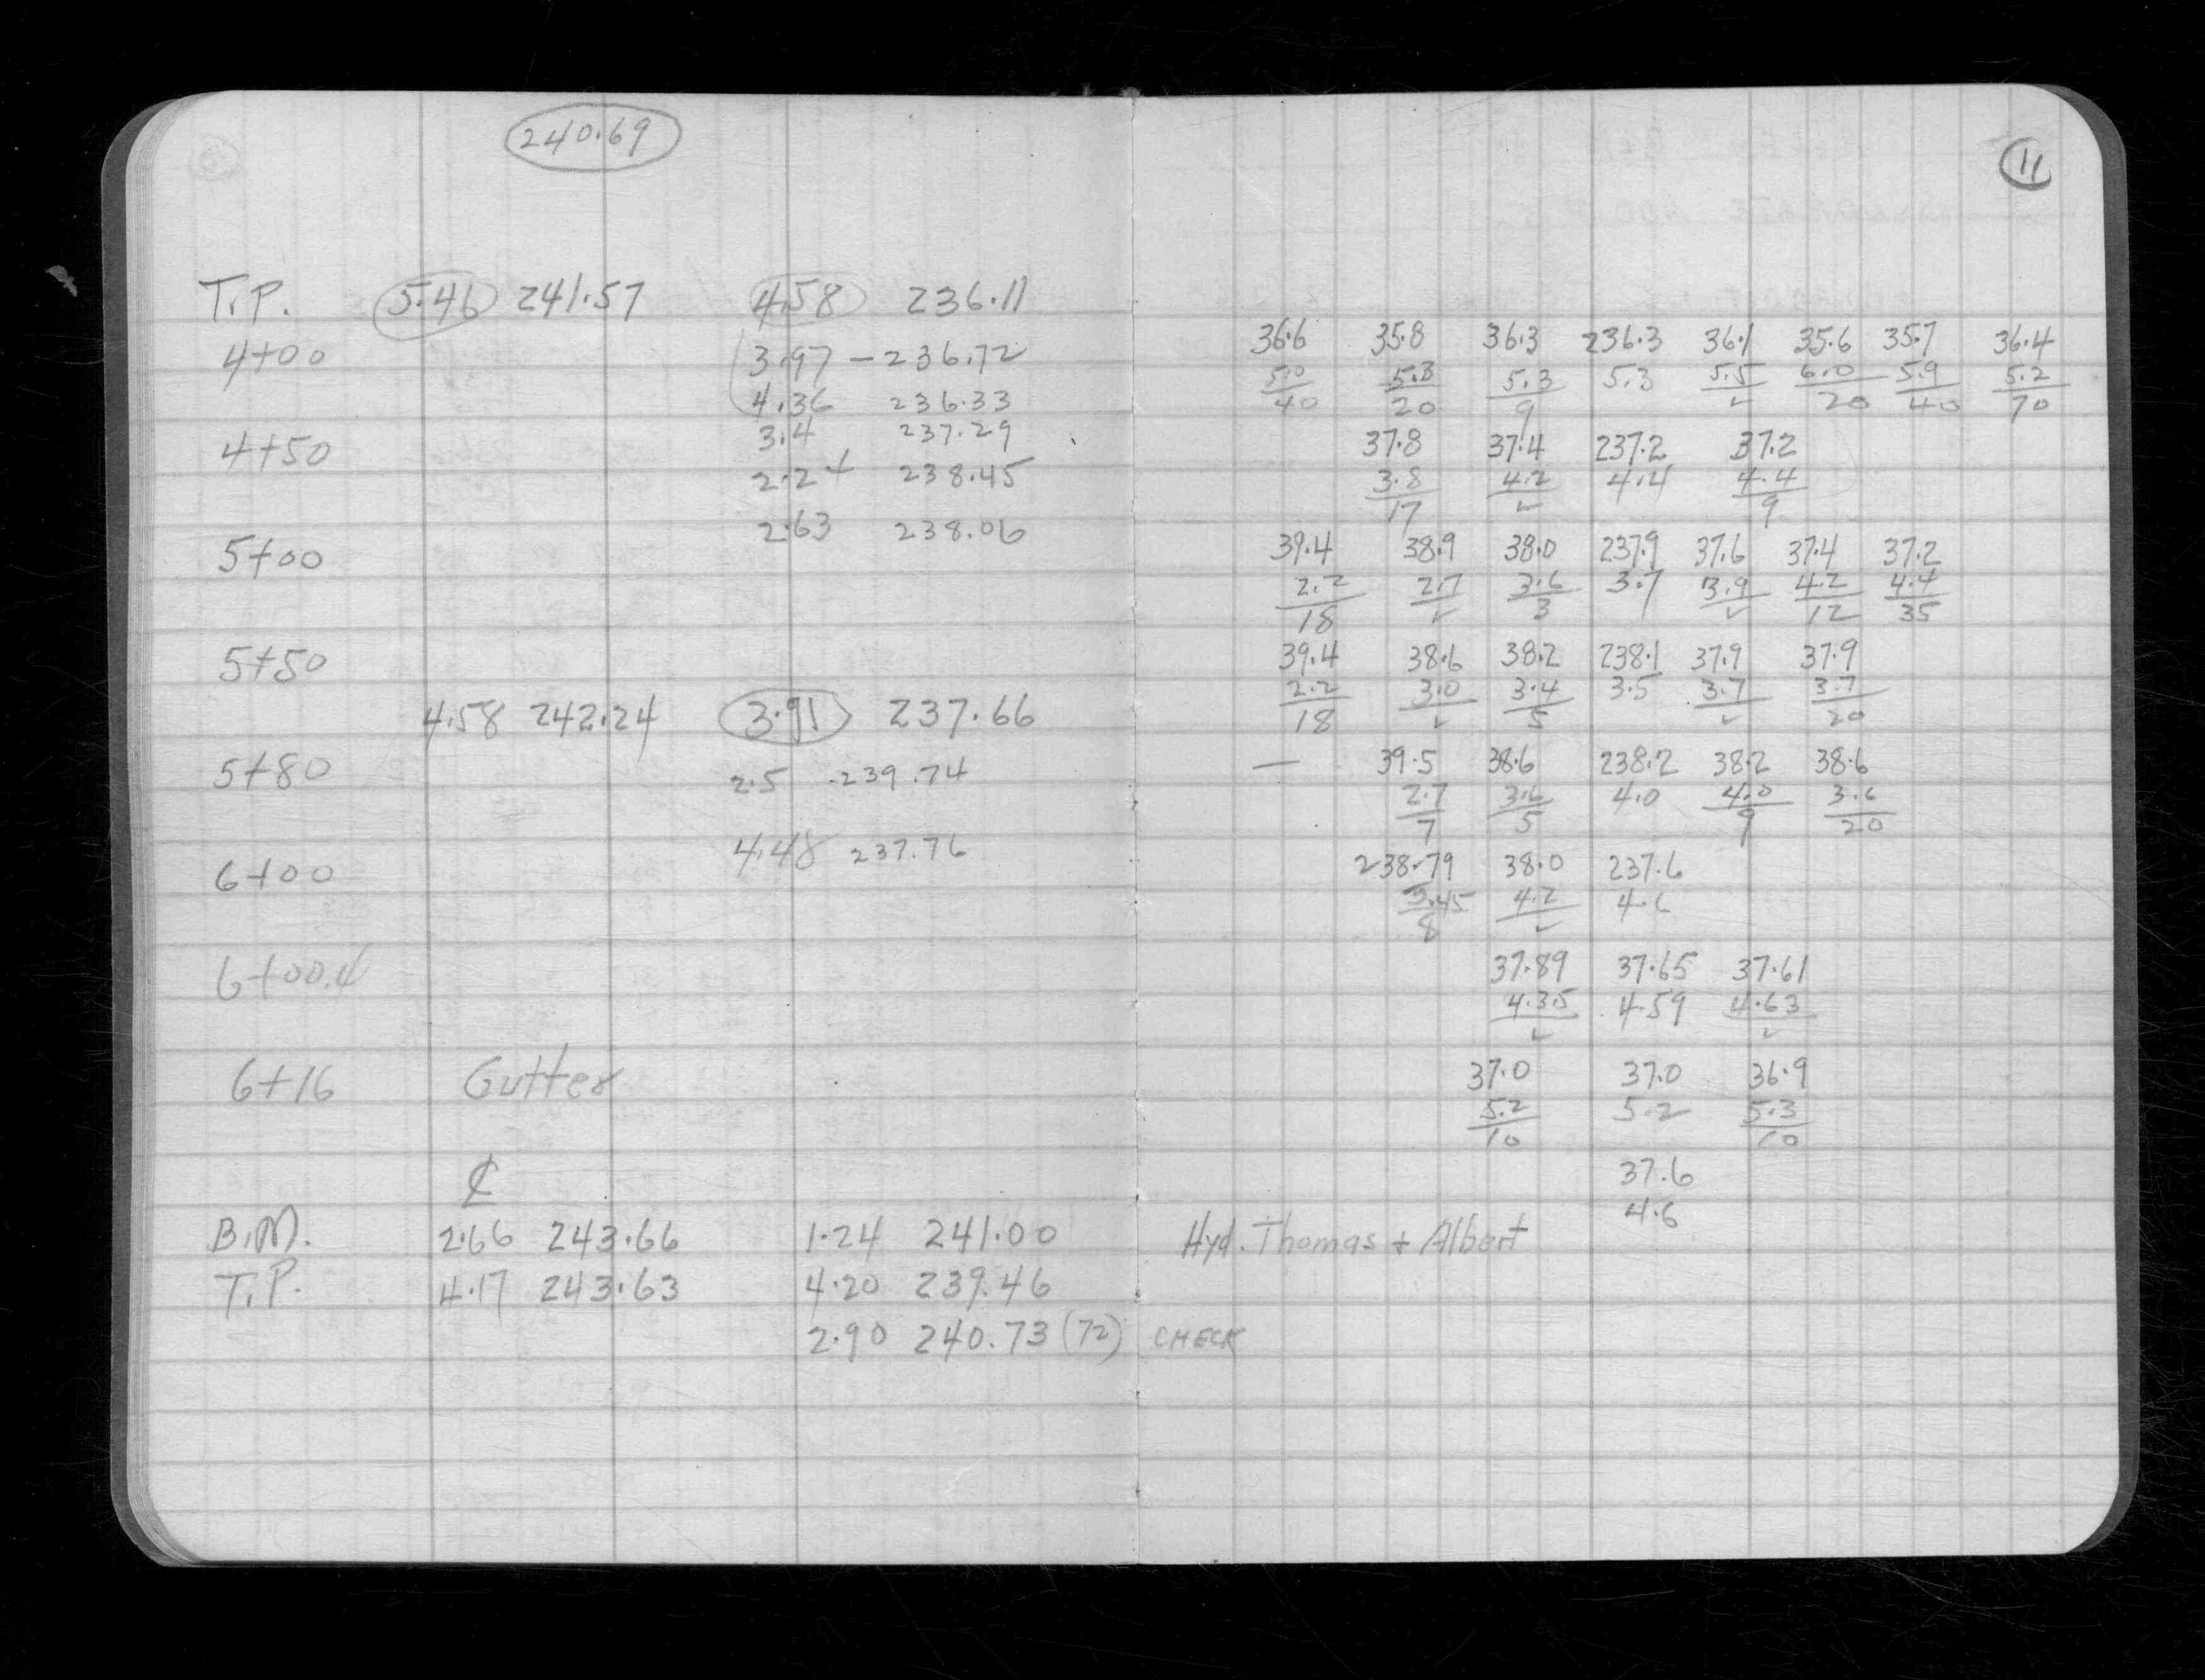 240.69
11
T.P. 5.46 241.57 4.58 236.11
36.6 35.8 36.3 236.3 36.1 35.6 35.7 36.4
4+00 3.97 - 236.72
5.0/40 5.3/20 5.3/9 5.3 5.5/✓ 6.0/20 5.9/40 5.2/70
4.36 236.33
3.4 237.29
4+50 37.8 37.4 237.2 37.2
2.2+ 238.45
3.8/17 4.2/✓ 4.4 4.4/9
2.63 238.06
5+00 39.4 38.9 38.0 237.9 37.6 37.4 37.2
2.2/18 2.7/✓ 3.6/3 3.7 3.9/✓ 4.2/12 4.4/35
5+50 39.4 38.6 38.2 238.1 37.9 37.9
2.2/18 3.0/✓ 3.4/5 3.5 3.7/✓ 3.7/20
4.58 242.24 3.91 237.66
5+80 2.5 -239.74
— 39.5 38.6 238.2 38.2 38.6
2.7/7 3.6/5 4.0 4.0/9 3.6/20
4.48 237.76
6+00 238.79 38.0 237.6
3.45/8 4.2/✓ 4.6
6+00.4 37.89 37.65 37.61
4.35/✓ 4.59 4.63/✓
6+16 Gutter 37.0 37.0 36.9
5.2/10 5.2 5.3/10
℄ 37.6
4.6
B.M. 2.66 243.66 1.24 241.00 Hyd. Thomas + Albert
T.P. 4.17 243.63 4.20 239.46
2.90 240.73 (72) CHECK